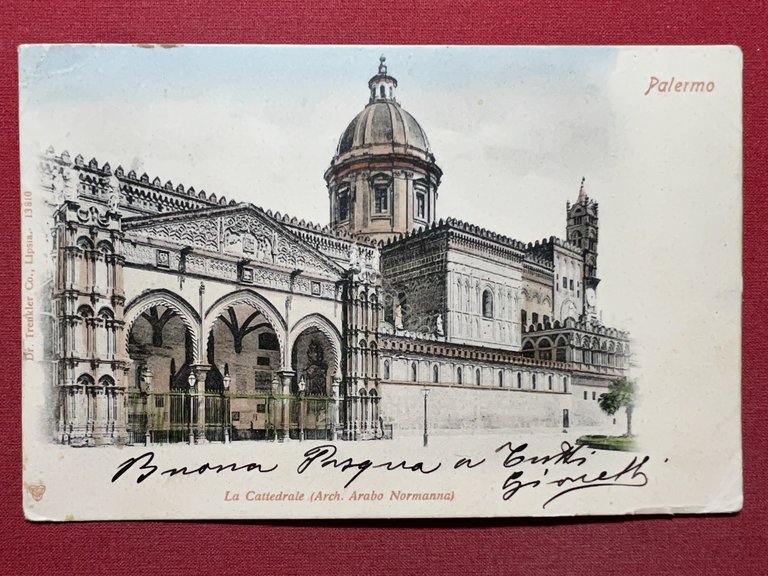 Palermo
Dr. Trenkler Co., Lipsia.- 13810
Buona Pasqua a Tutti
La Cattedrale (Arch. Arabo Normanna)